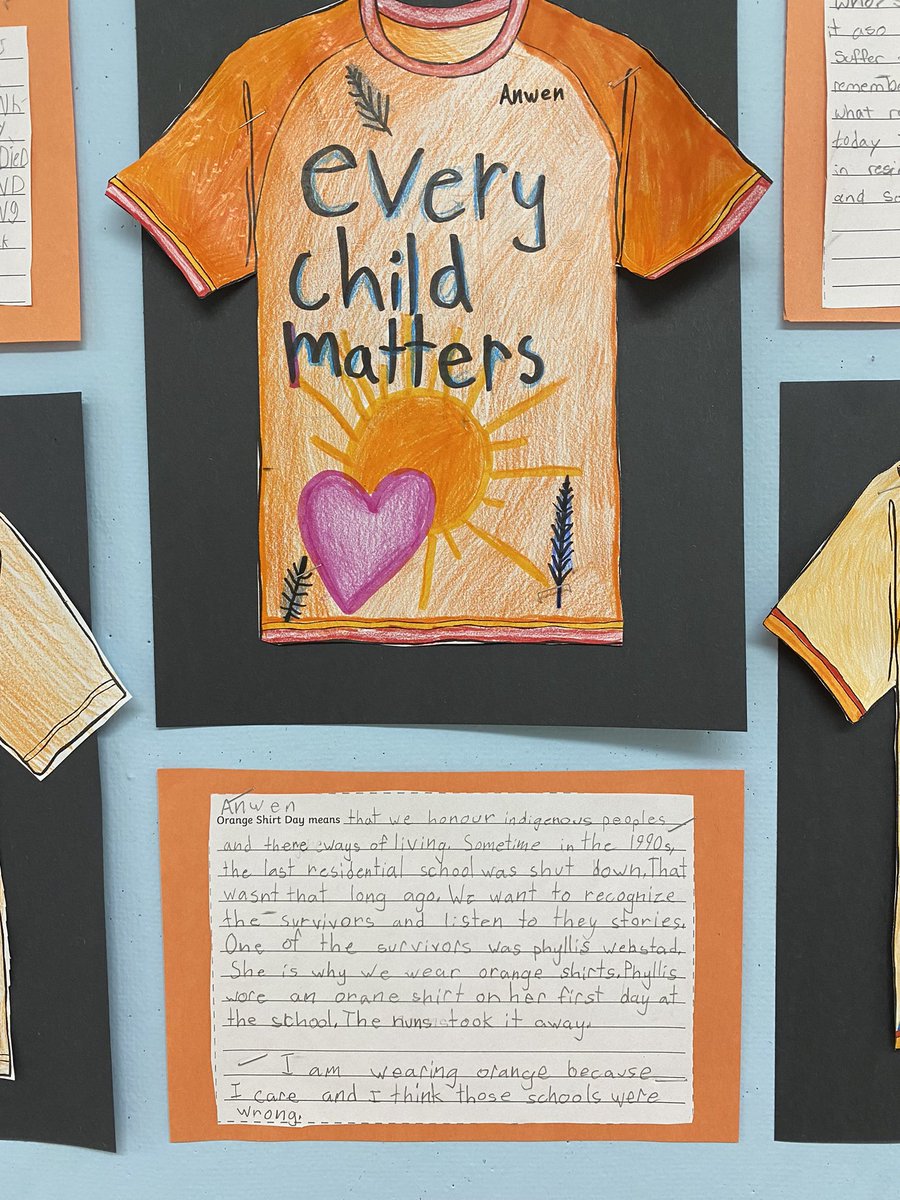 Anwen
every
child
matters
Died
what r
today
in resi
and so
Suffer
rememb
Anwen
Orange Shirt Day means that we honour indigenous peoples
and there ways of living. Sometime in the 1990s,
the last residential school was shut down. That
wasnt that long ago. We want to recognize
the survivors and listen to they stories.
One of the survivors was phyllis webstad.
She is why we wear orange shirts. Phyllis
wore an orane shirt on her first day at
the school. The nuns took it away.
I am wearing orange because
I care and I think those schools were
wrong.